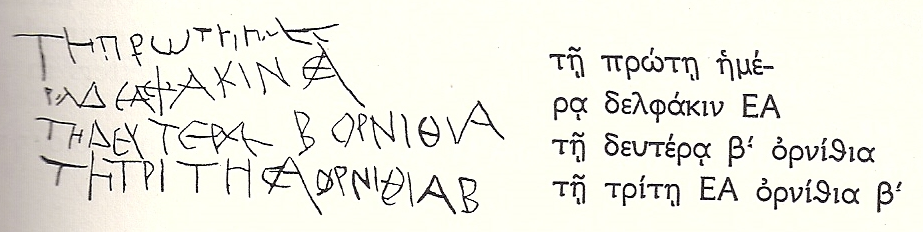 ΤΗΠΡΩΤΗΗΜΕ
ΡΑΔΕΛΦΑΚΙΝ ΕΑ
ΤΗΔΕΥΤΕΡΑ Β ΟΡΝΙΘΙΑ
ΤΗΤΡΙΤΗ ΕΑ ΟΡΝΙΘΙΑ Β
τῇ πρώτῃ ἡμέ-
ρᾳ δελφάκιν ΕΑ
τῇ δευτέρᾳ β‘ ὀρνίθια
τῇ τρίτῃ ΕΑ ὀρνίθια β‘